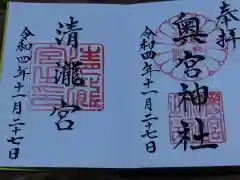 奉拝
奥宮神社
令和四年十一月二十七日
清瀧宮
令和四年十一月二十七日